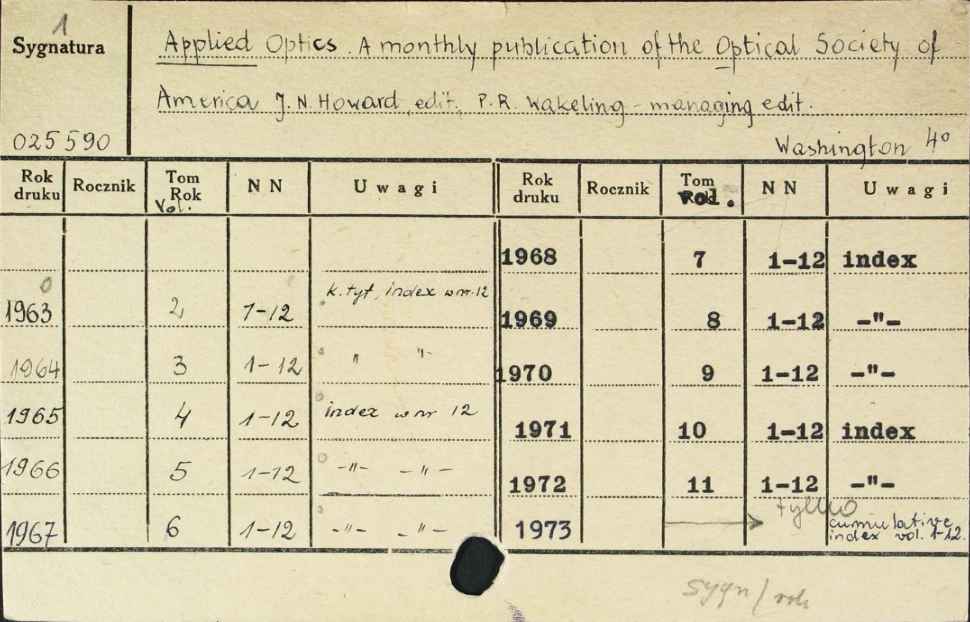 1
Sygnatura
025590
Applied Optics. A monthly publication of the Optical Society of
America J.N. Howard edit. P.R. Wakeling - managing edit.
Washington 4°
Rok druku Rocznik Tom Rok Vol. NN Uwagi
1963 2 1-12 k. tyt, index w nr. 12
1964 3 1-12 " "-
1965 4 1-12 index w nr 12
1966 5 1-12 -"- -"-
1967 6 1-12 -"- -"-
Rok druku Rocznik Tom vol. NN Uwagi
1968 7 1-12 index
1969 8 1-12 -"-
1970 9 1-12 -"-
1971 10 1-12 index
1972 11 1-12 -"-
1973 tylko cumulative
index vol. 1-12.
sygn/rok